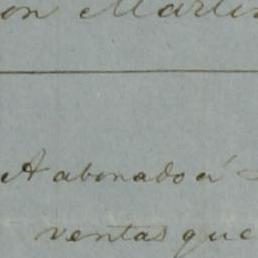 on Marti
A abonado á
ventas que